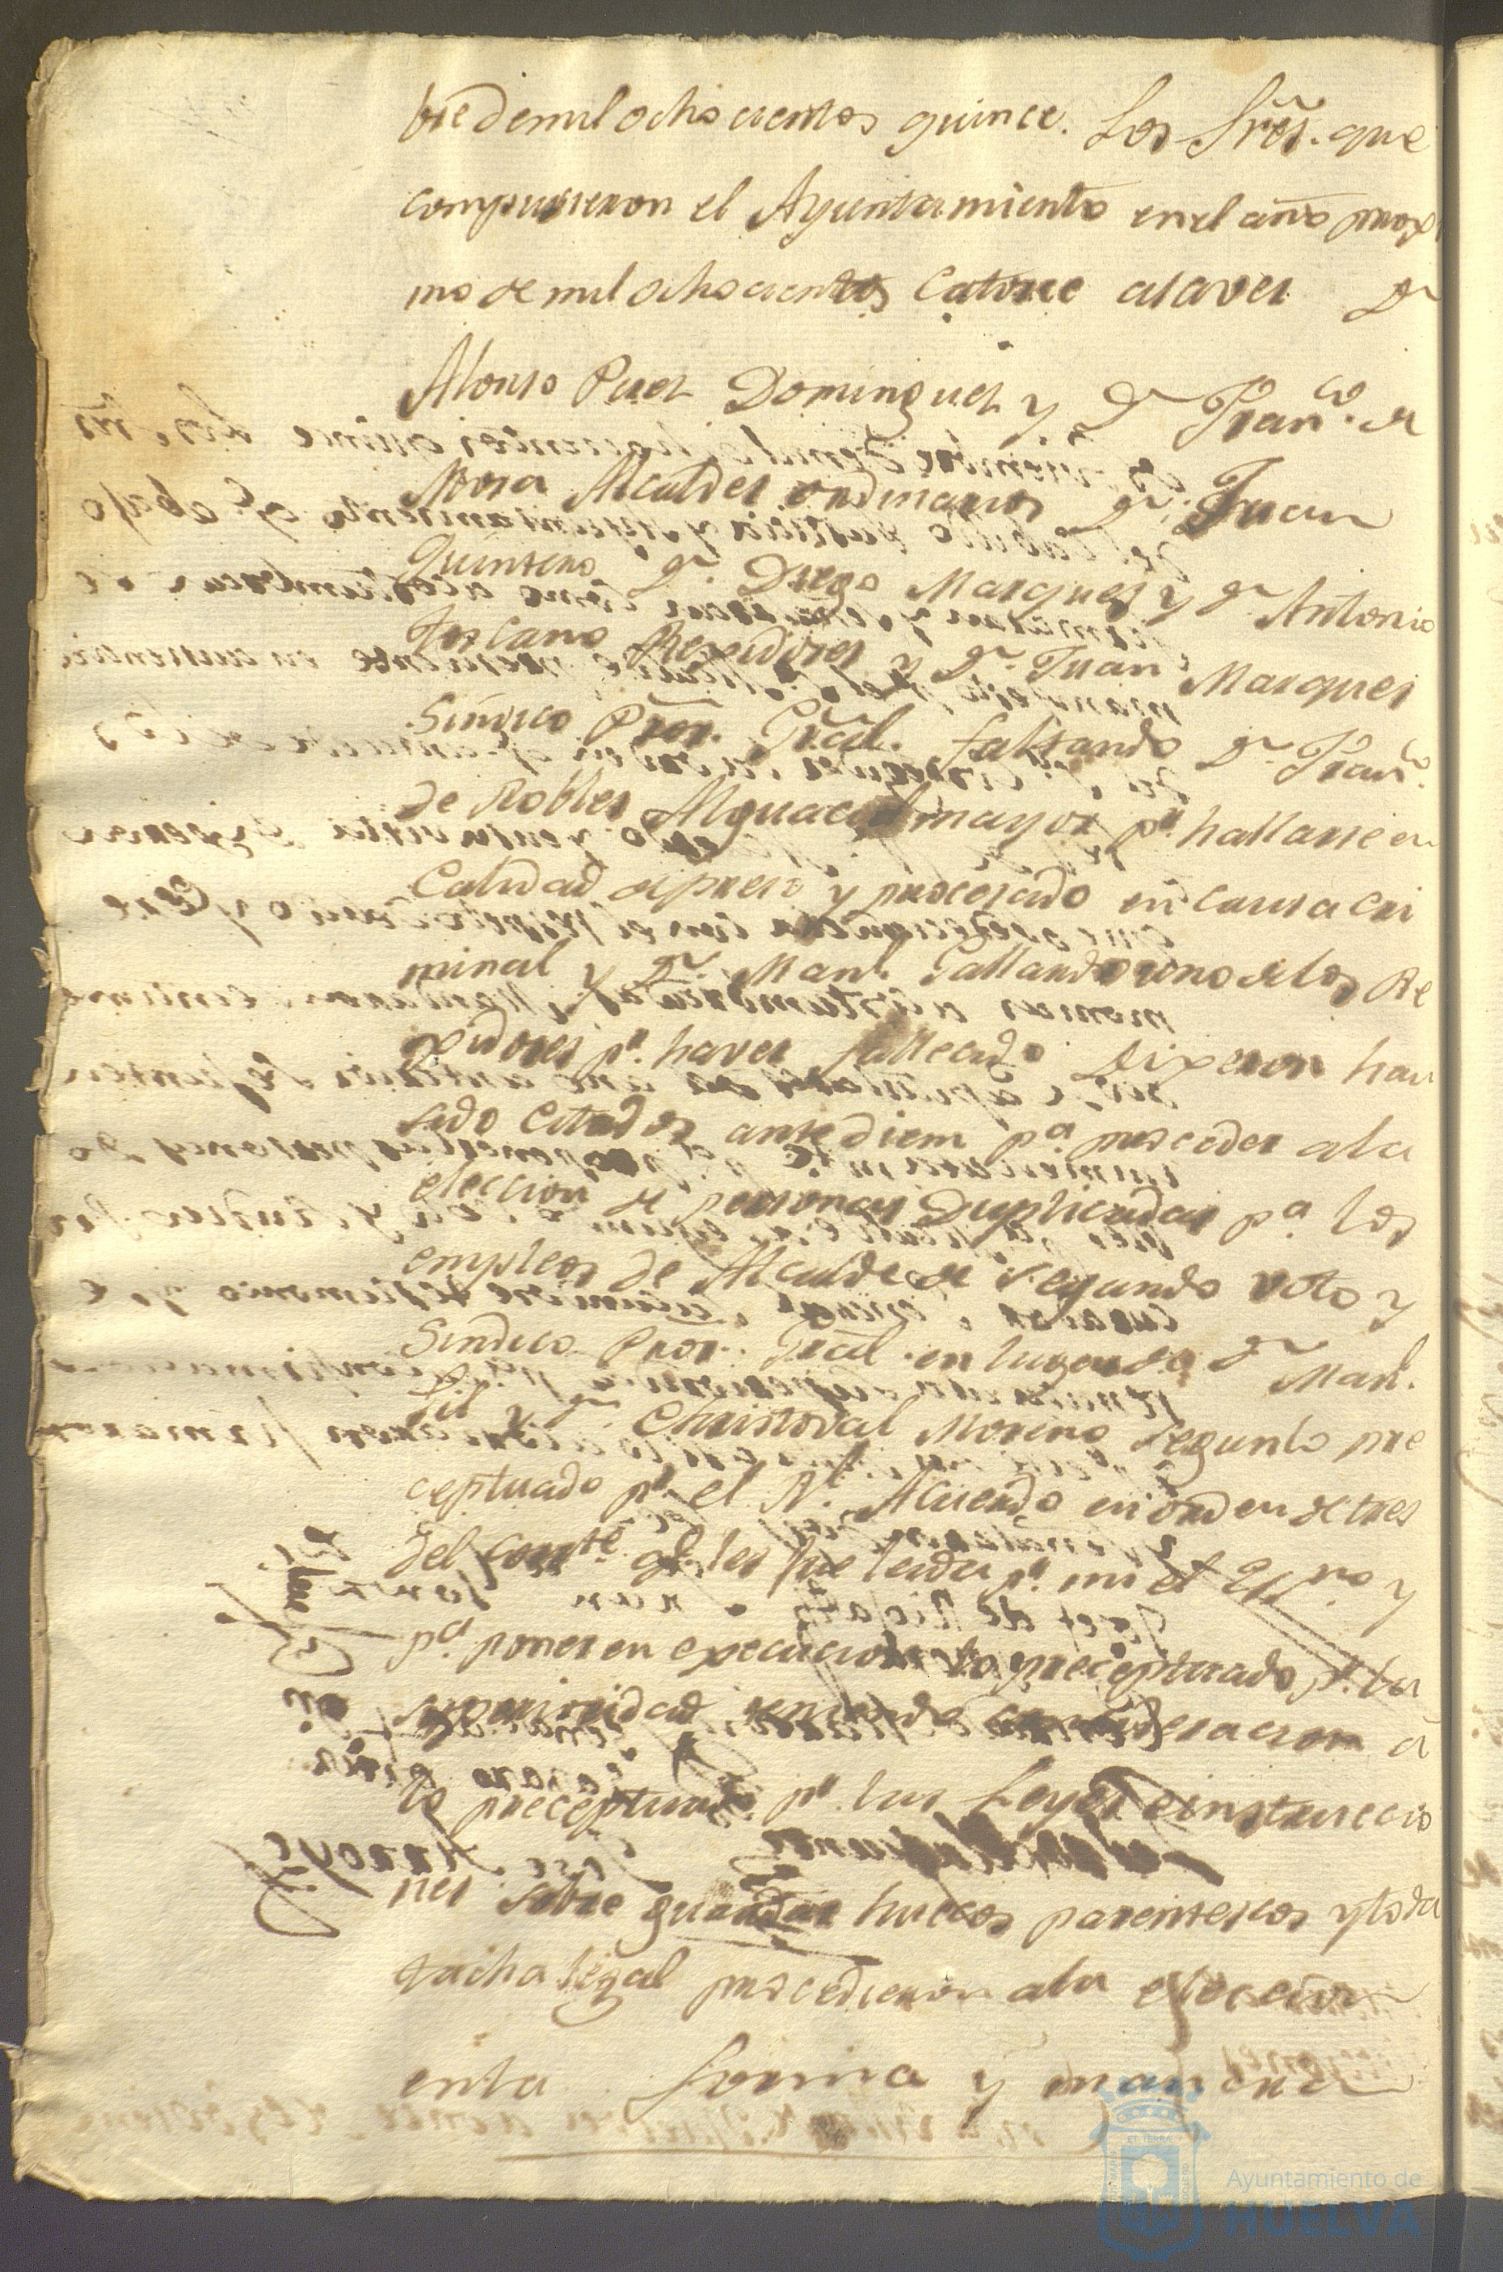 bre de mil ocho cientos quince. Los Sres. que
compusieron el Ayuntamiento en el año proxi
mo de mil ochocientos catorce a saver Dn
Alonso Perez Dominguez y Dn Franco. de
Mora Alcaldes ordinarios Dn. Juan
Quintero Dn. Diego Marquez y Dn Antonio
Toscano Regidores y Dn. Juan Marquez
Sindico Pror. Gral. faltando Dn Franco.
de Robles Alguacil mayor pr. hallarse en
calidad de preso y procesado en causa cri
minal y Dn. Manl. Gallardo uno de los Re
gidores pr. haver fallecido Dixeron han
sido citados ante diem pa proceder a la
eleccion de personas duplicadas pa los
empleos de Alcalde de segundo voto y
Sindico Pror. Gral. en lugar de Dn Manl.
Gil y Dn. Christoval Moreno segun lo pre
ceptuado pr. el Rl. Acuerdo en orden de tres
del corrte. qe. les fue leida pr. mi el Essno. y
pa. poner en execucion lo preceptuado pr. la
superioridad teniendo consideracion a
lo preceptuado pr. las Leyes e instruccio
nes sobre guardar huecos parentescos y toda
tacha legal procedieron a la eleccion
en la forma y manera
Ayuntamiento de
HUELVA